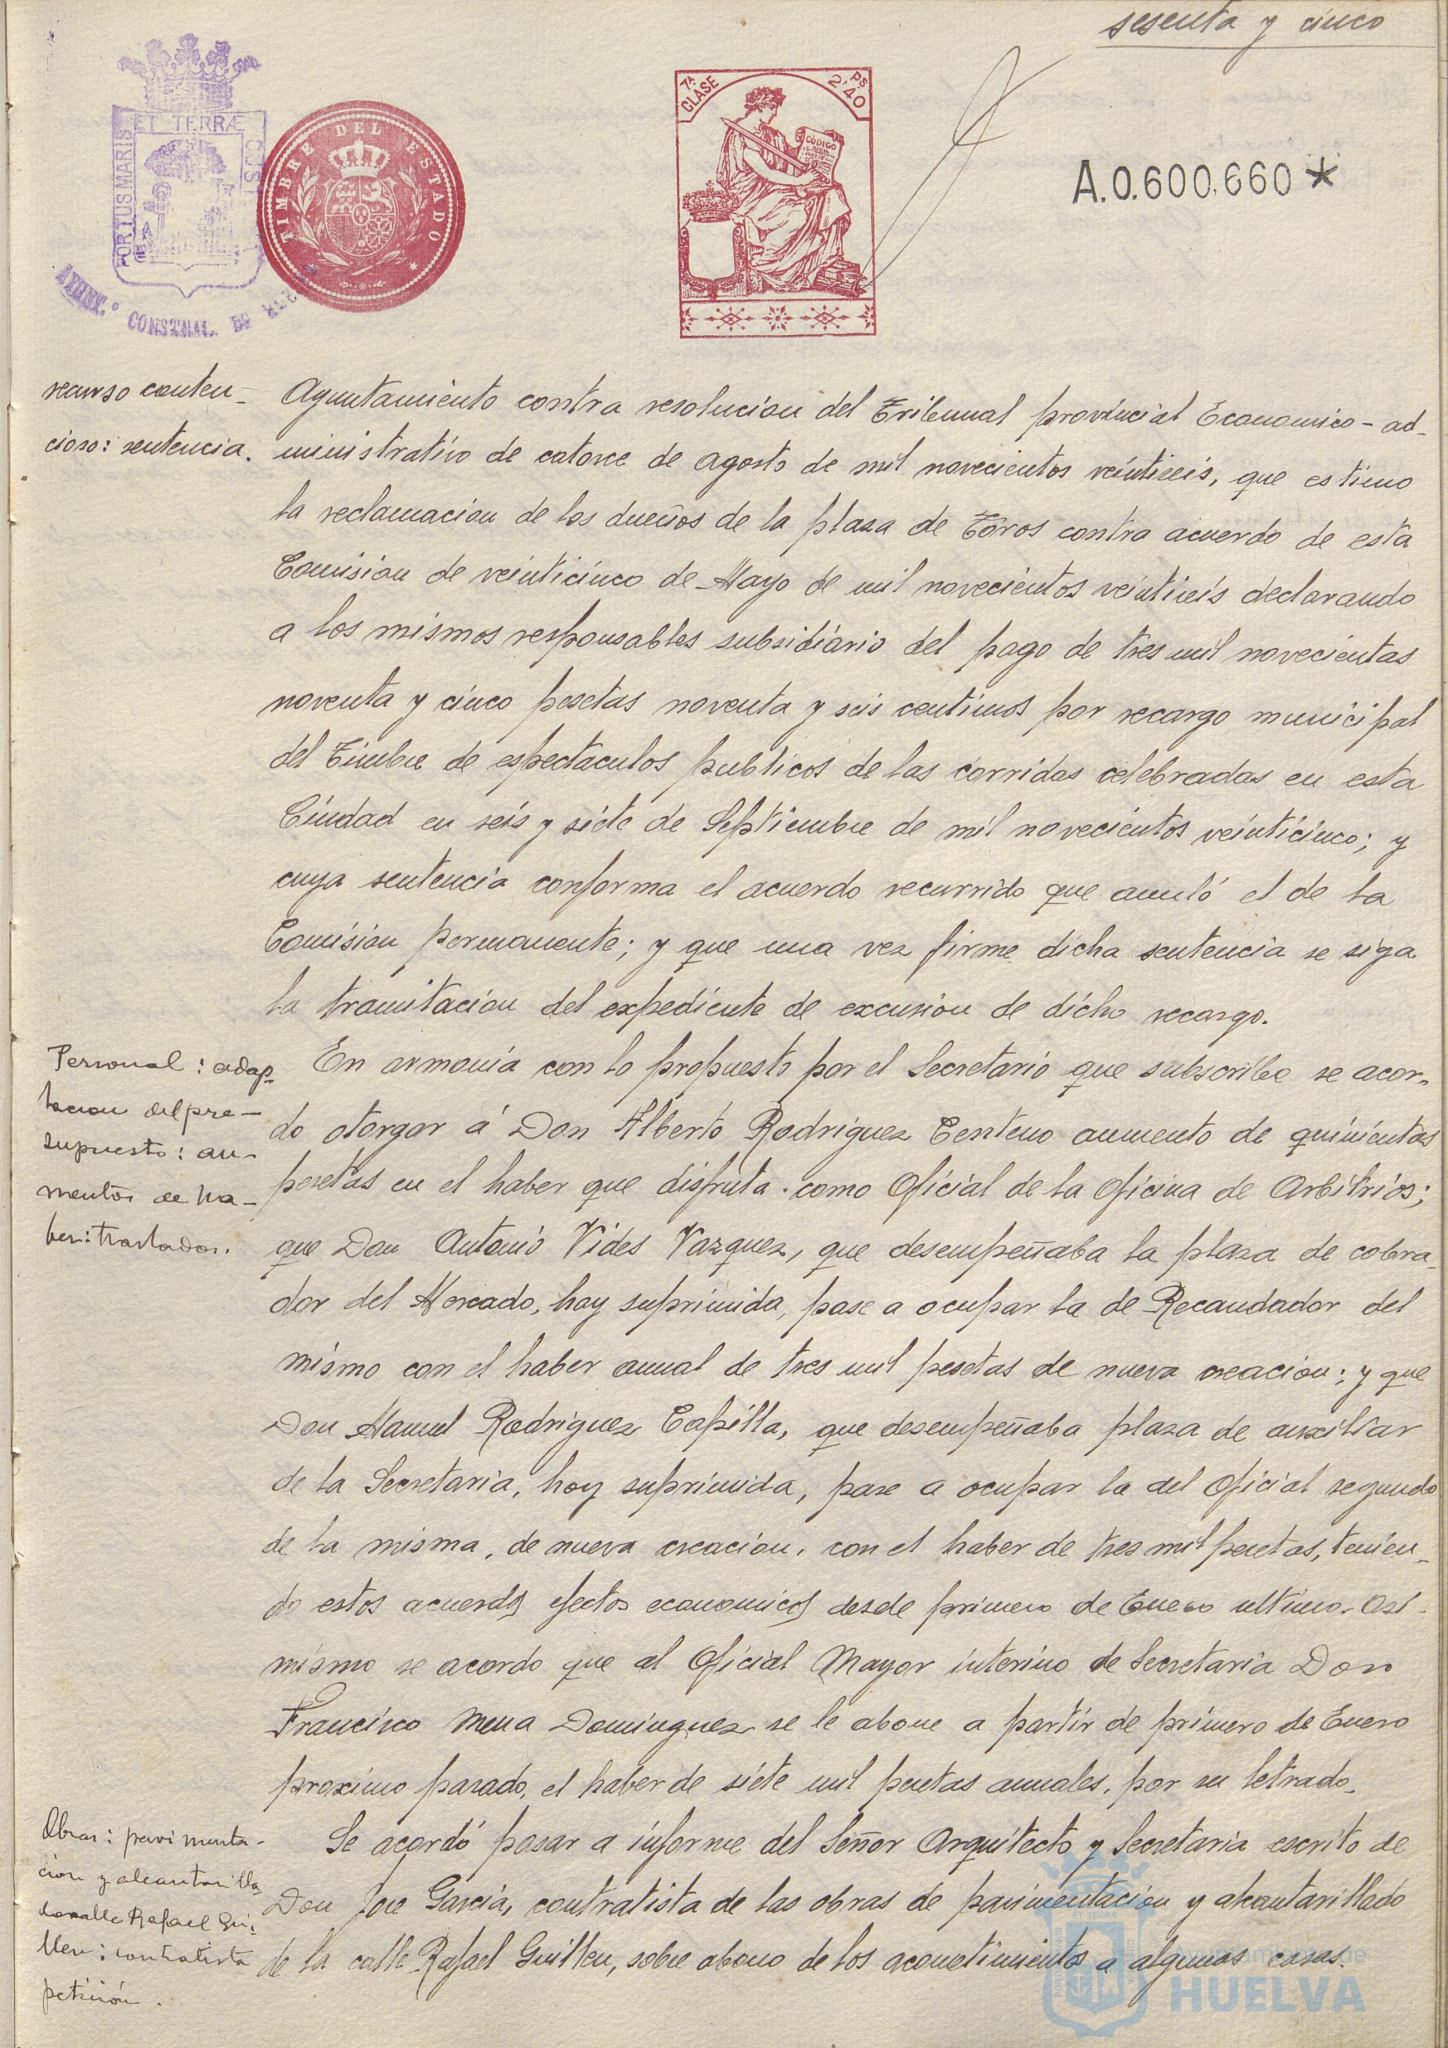 sesenta y cinco
PORTUS MARIS
ET TERRÆ
CUSTODIA
AYUNT.º CONSTNAL. DE HUELVA
TIMBRE DEL ESTADO
7ª CLASE
PS 2'40
CÓDIGO
A.0.600.660*
recurso conten-
cioso: sentencia.
Ayuntamiento contra resolucion del Tribunal provincial Economico-ad-
ministrativo de catorce de agosto de mil novecientos veintiseis, que estimo
la reclamacion de los dueños de la plaza de Toros contra acuerdo de esta
Comision de veinticinco de Mayo de mil novecientos veintiseis declarando
a los mismos responsables subsidiario del pago de tres mil novecientas
noventa y cinco pesetas noventa y seis centimos por recargo municipal
del Timbre de espectaculos publicos de las corridas celebradas en esta
Ciudad en seis y siete de Septiembre de mil novecientos veinticinco; y
cuya sentencia conforma el acuerdo recurrido que anuló el de la
Comision permanente; y que una vez firme dicha sentencia se siga
la tramitacion del expediente de excusion de dicho recargo.
Personal: adap-
tacion del pre-
supuesto: au-
mentos de ha-
ber: traslados.
En armonia con lo propuesto por el Secretario que subscribe se acor-
do otorgar á Don Alberto Rodriguez Centeno aumento de quinientas
pesetas en el haber que disfruta como Oficial de la Oficina de Arbitrios;
que Don Antonio Vides Vazquez, que desempeñaba la plaza de cobra-
dor del Mercado, hoy suprimida, pase a ocupar la de Recaudador del
mismo con el haber anual de tres mil pesetas de nueva creacion; y que
Don Manuel Rodriguez Capilla, que desempeñaba plaza de auxiliar
de la Secretaria, hoy suprimida, pase a ocupar la del Oficial segundo
de la misma, de nueva creacion, con el haber de tres mil pesetas, tenien-
do estos acuerdos efectos economicos desde primero de Enero ultimo. Asi-
mismo se acordo que al Oficial Mayor interino de Secretaria Don
Francisco Mena Dominguez se le abone a partir de primero de Enero
proximo pasado, el haber de siete mil pesetas anuales, por su letrado.
Obras: pavimenta-
cion y alcantarilla-
do calle Rafael Gui-
llen: contratista
petición.
Se acordó pasar a informe del Señor Arquitecto y Secretaria escrito de
Don Jose Garcia, contratista de las obras de pavimentacion y alcantarillado
de la calle Rafael Guillen, sobre abono de los acometimientos a algunas casas.
Ayuntamiento de
HUELVA